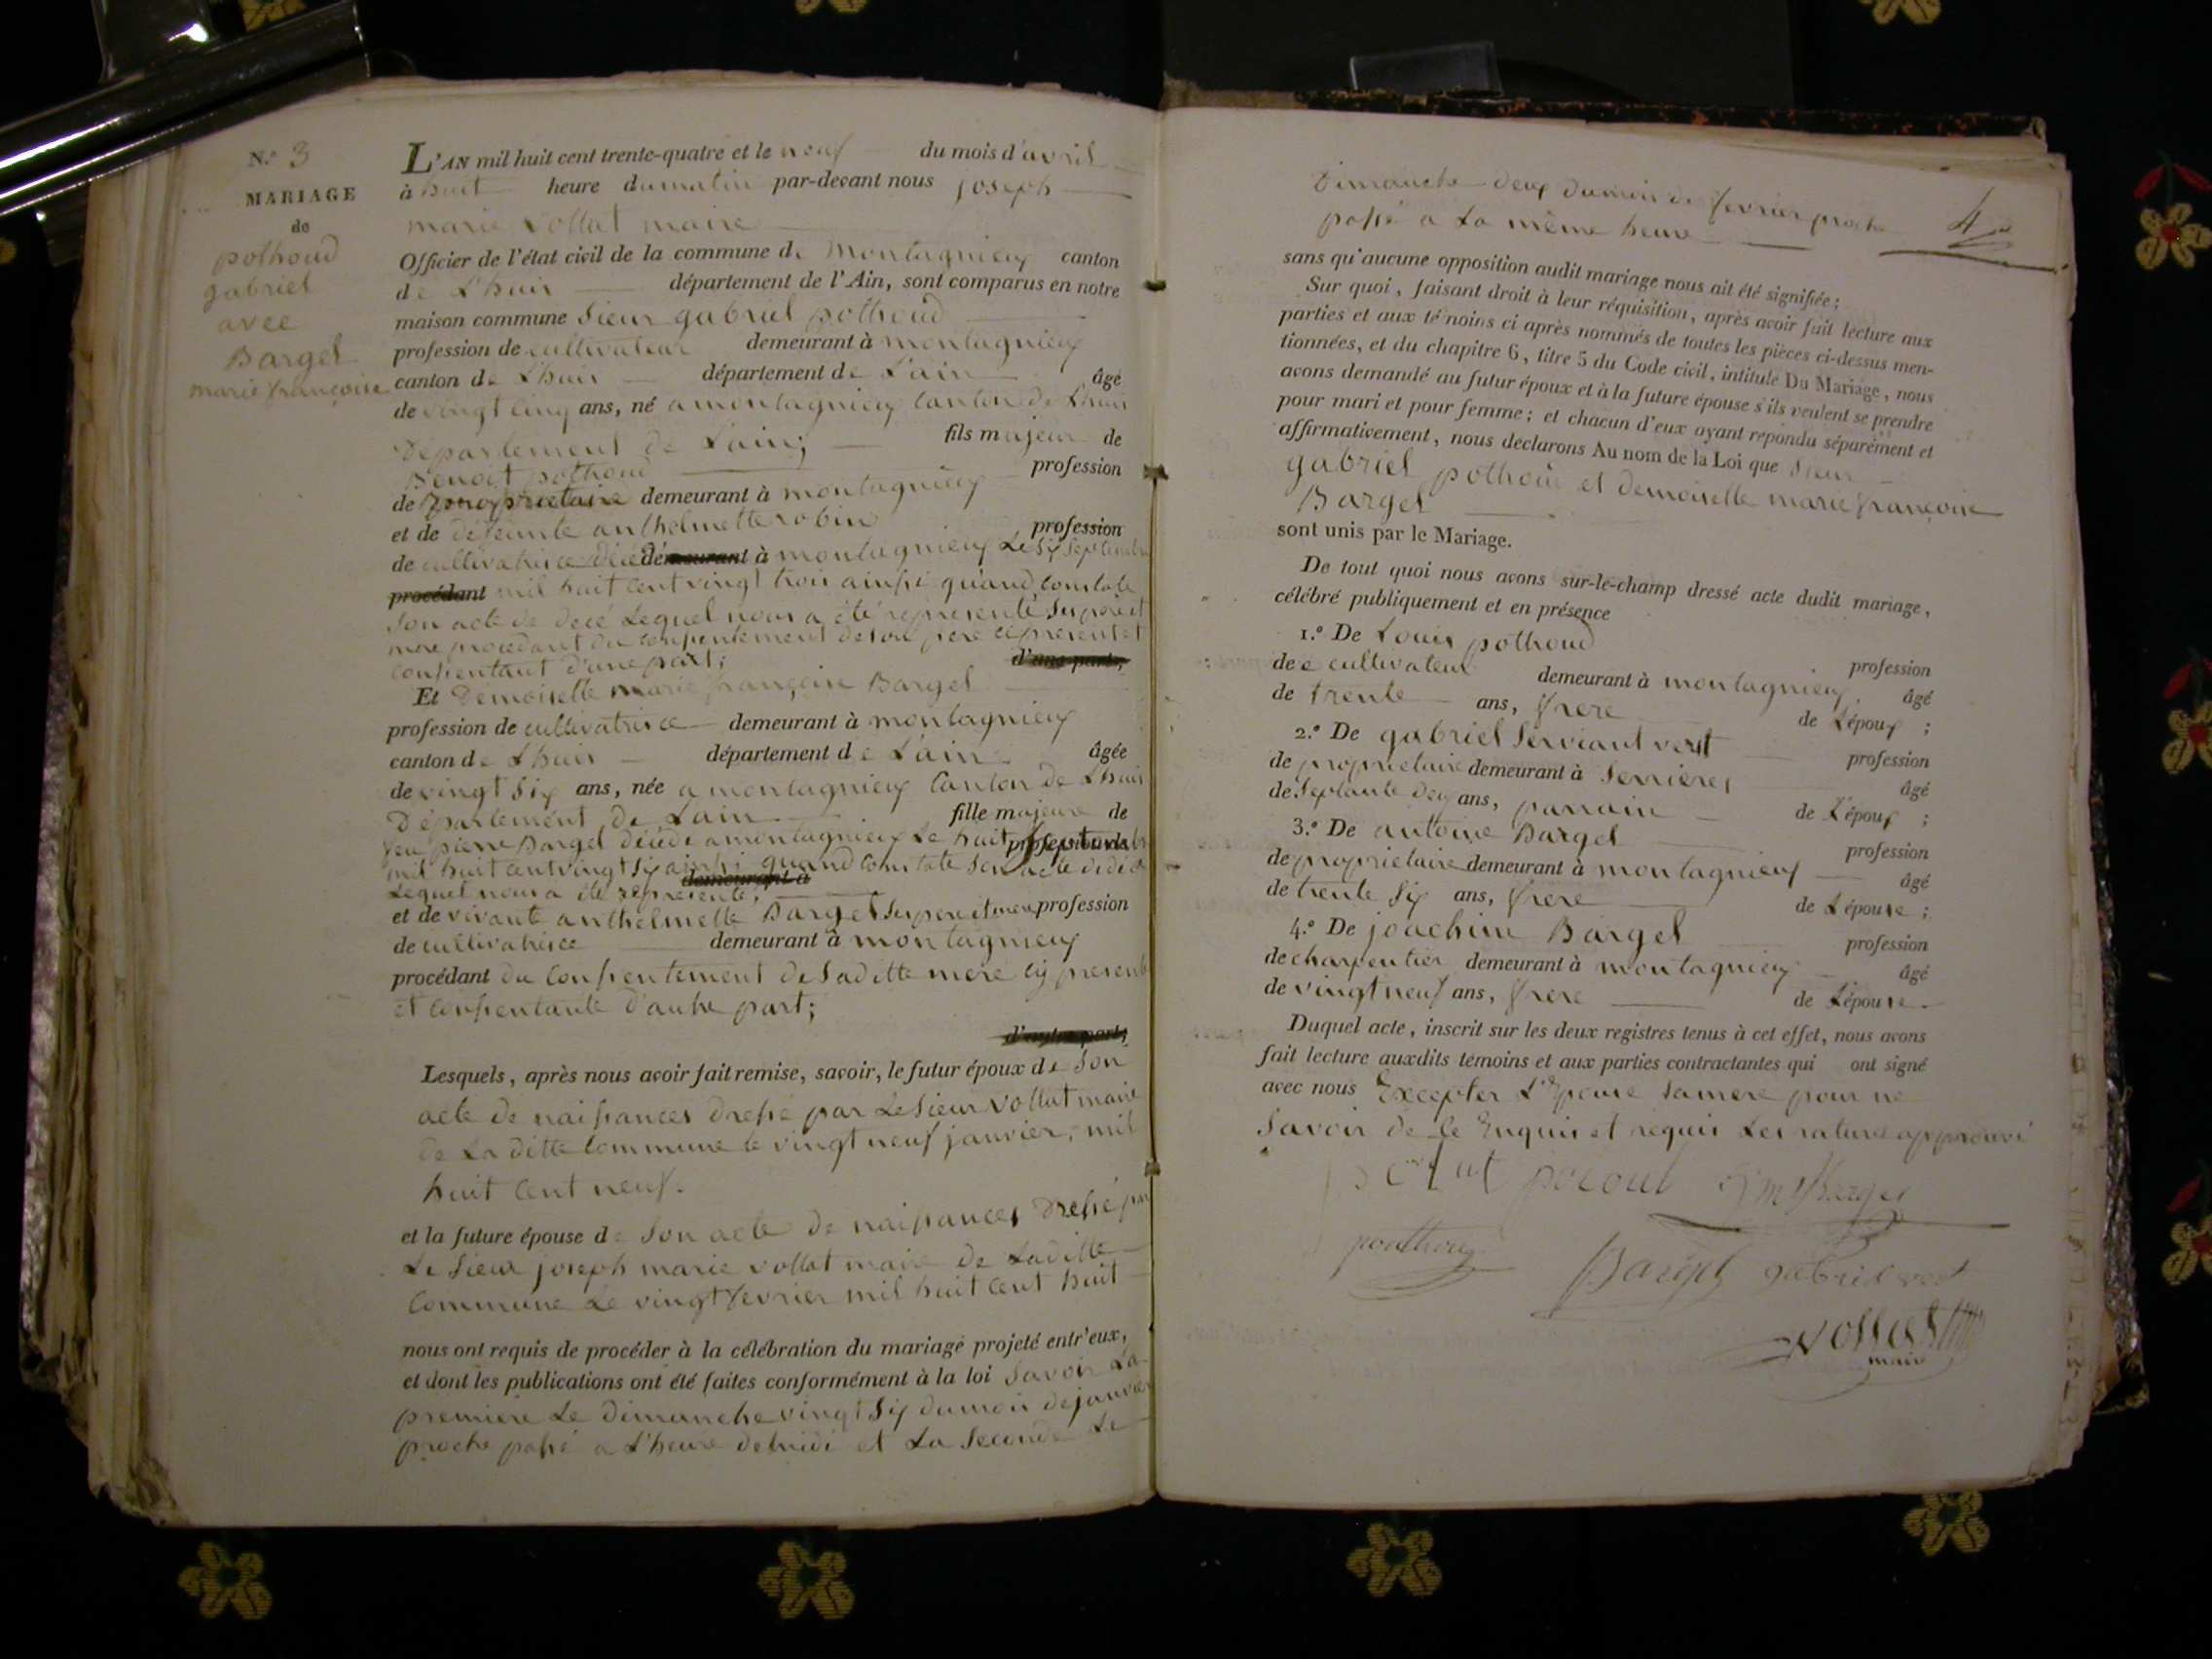 N.º 3
MARIAGE
de
pothoud
gabriel
avec
Bargel
marie françoise
L'AN mil huit cent trente-quatre et le neuf du mois d'avril
à huit heure dumatin par-devant nous joseph
marie vollat maire
Officier de l'état civil de la commune de Montagnieux canton
de Lhuis département de l'Ain, sont comparus en notre
maison commune Sieur gabriel pothoud
profession de cultivateur demeurant à montagnieux
canton de Lhuis département de L'ain âgé
de vingt cinq ans, né a montagnieux Canton de Lhuis
Département de L'ain; fils majeur de
Benoit pothoud profession
de proprietaire demeurant à montagnieux
et de defeunte anthelmette robin profession
de cultivatrisce décédé demeurant à montagnieux Le six Septembre
procédant mil huit cent vingt trois ainssi quand constate
Son acte de decé Lequel nous a été representé Ses pere et
mere procedant du conssentement de son pere ci present et
conssentant d'une part; d'une part;
Et Demoiselle marie françoise Bargel
profession de cultivatrisce demeurant à montagnieux
canton de Lhuis département de L'ain âgée
de vingt Six ans, née a montagnieux Canton de Lhuis
Département de L'ain fille majeure de
feu pierre Bargel décédé a montagnieux Le huit profession de
mil huit cent vingt six ainssi quand constate Son acte de décé
Lequel nous a été representé; demeurant à
et de vivante anthelmette Bargel Ses pere et mere profession
de cultivatrisce demeurant à montagnieux
procédant du Conssentement de Saditte mere cy presente
et conssentante d'autre part;
d'autre part;
Lesquels, après nous avoir fait remise, savoir, le futur époux de Son
acte de naissances Dressé par Le Sieur vollat maire
de La ditte Commune le vingt neuf janvier, mil
huit Cent neuf.
et la future épouse de Son acte de naissances Dressé par
Le Sieur joseph marie vollat maire de Laditte
Commune Le vingt fevrier mil huit cent huit
nous ont requis de procéder à la célébration du mariage projeté entr'eux,
et dont les publications ont été faites conformément à la loi Savoir La
premiere Le Dimanche vingt Six dumois de janvier
proche passé a L'heure demidi et La Seconde Le
Dimanche deux dumois de fevrier proche
passé a La même heure
4
sans qu'aucune opposition audit mariage nous ait été signifiée;
Sur quoi, faisant droit à leur réquisition, après avoir fait lecture aux
parties et aux témoins ci après nommés de toutes les pièces ci-dessus men-
tionnées, et du chapitre 6, titre 5 du Code civil, intitulé Du Mariage, nous
avons demandé au futur époux et à la future épouse s'ils veulent se prendre
pour mari et pour femme; et chacun d'eux ayant répondu séparément et
affirmativement, nous declarons Au nom de la Loi que Sieur
gabriel pothoud et demoiselle marie françoise
Bargel
sont unis par le Mariage.
De tout quoi nous avons sur-le-champ dressé acte dudit mariage,
célébré publiquement et en présence
1.º De Louis pothoud profession
de cultivateur demeurant à montagnieux âgé
de trente ans, frere de L'époux ;
2.º De gabriel Serviant vert profession
de proprietaire demeurant à Serrieres âgé
de Septante deux ans, parrain de L'époux ;
3.º De antoine Bargel profession
de proprietaire demeurant à montagnieux âgé
de trente Six ans, frere de L'épouse ;
4.º De joachim Bargel profession
de charpentier demeurant à montagnieux âgé
de vingt neuf ans, frere de L'épouse.
Duquel acte, inscrit sur les deux registres tenus à cet effet, nous avons
fait lecture auxdits temoins et aux parties contractantes qui ont signé
avec nous Excepter L'Epouse Samere pour ne
Savoir de ce Enquis et requis Les rature approuvé
Bargel
Bargel gabriel vert
vollat
maire